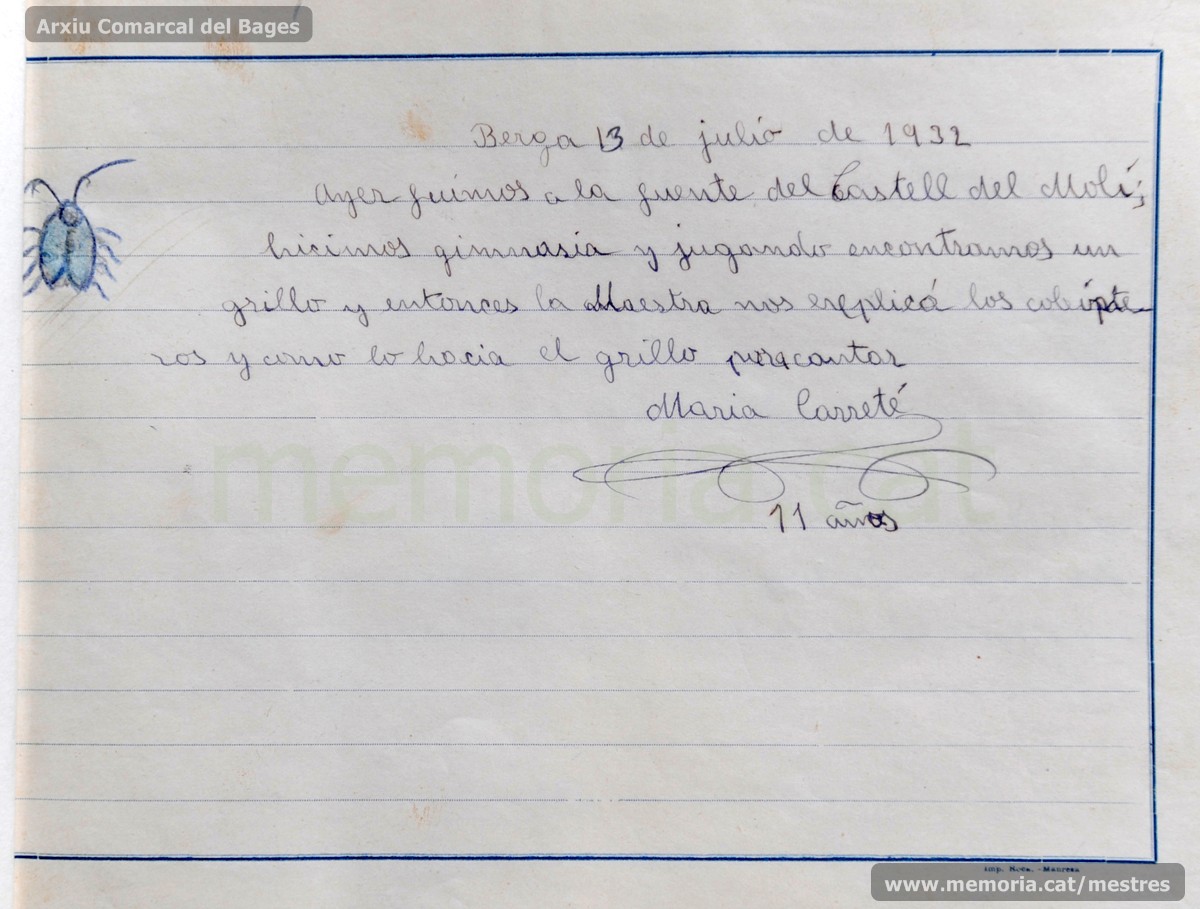 Arxiu Comarcal del Bages
Berga 13 de julio de 1932
Ayer fuimos a la fuente del Castell del Molí;
hicimos gimnasia y jugando encontramos un
grillo y entonces la Maestra nos explicó los coleópte-
ros y como lo hacia el grillo para cantar
Maria Carreté
memoria.cat
11 años
Imp. Roca. - Manresa
www.memoria.cat/mestres